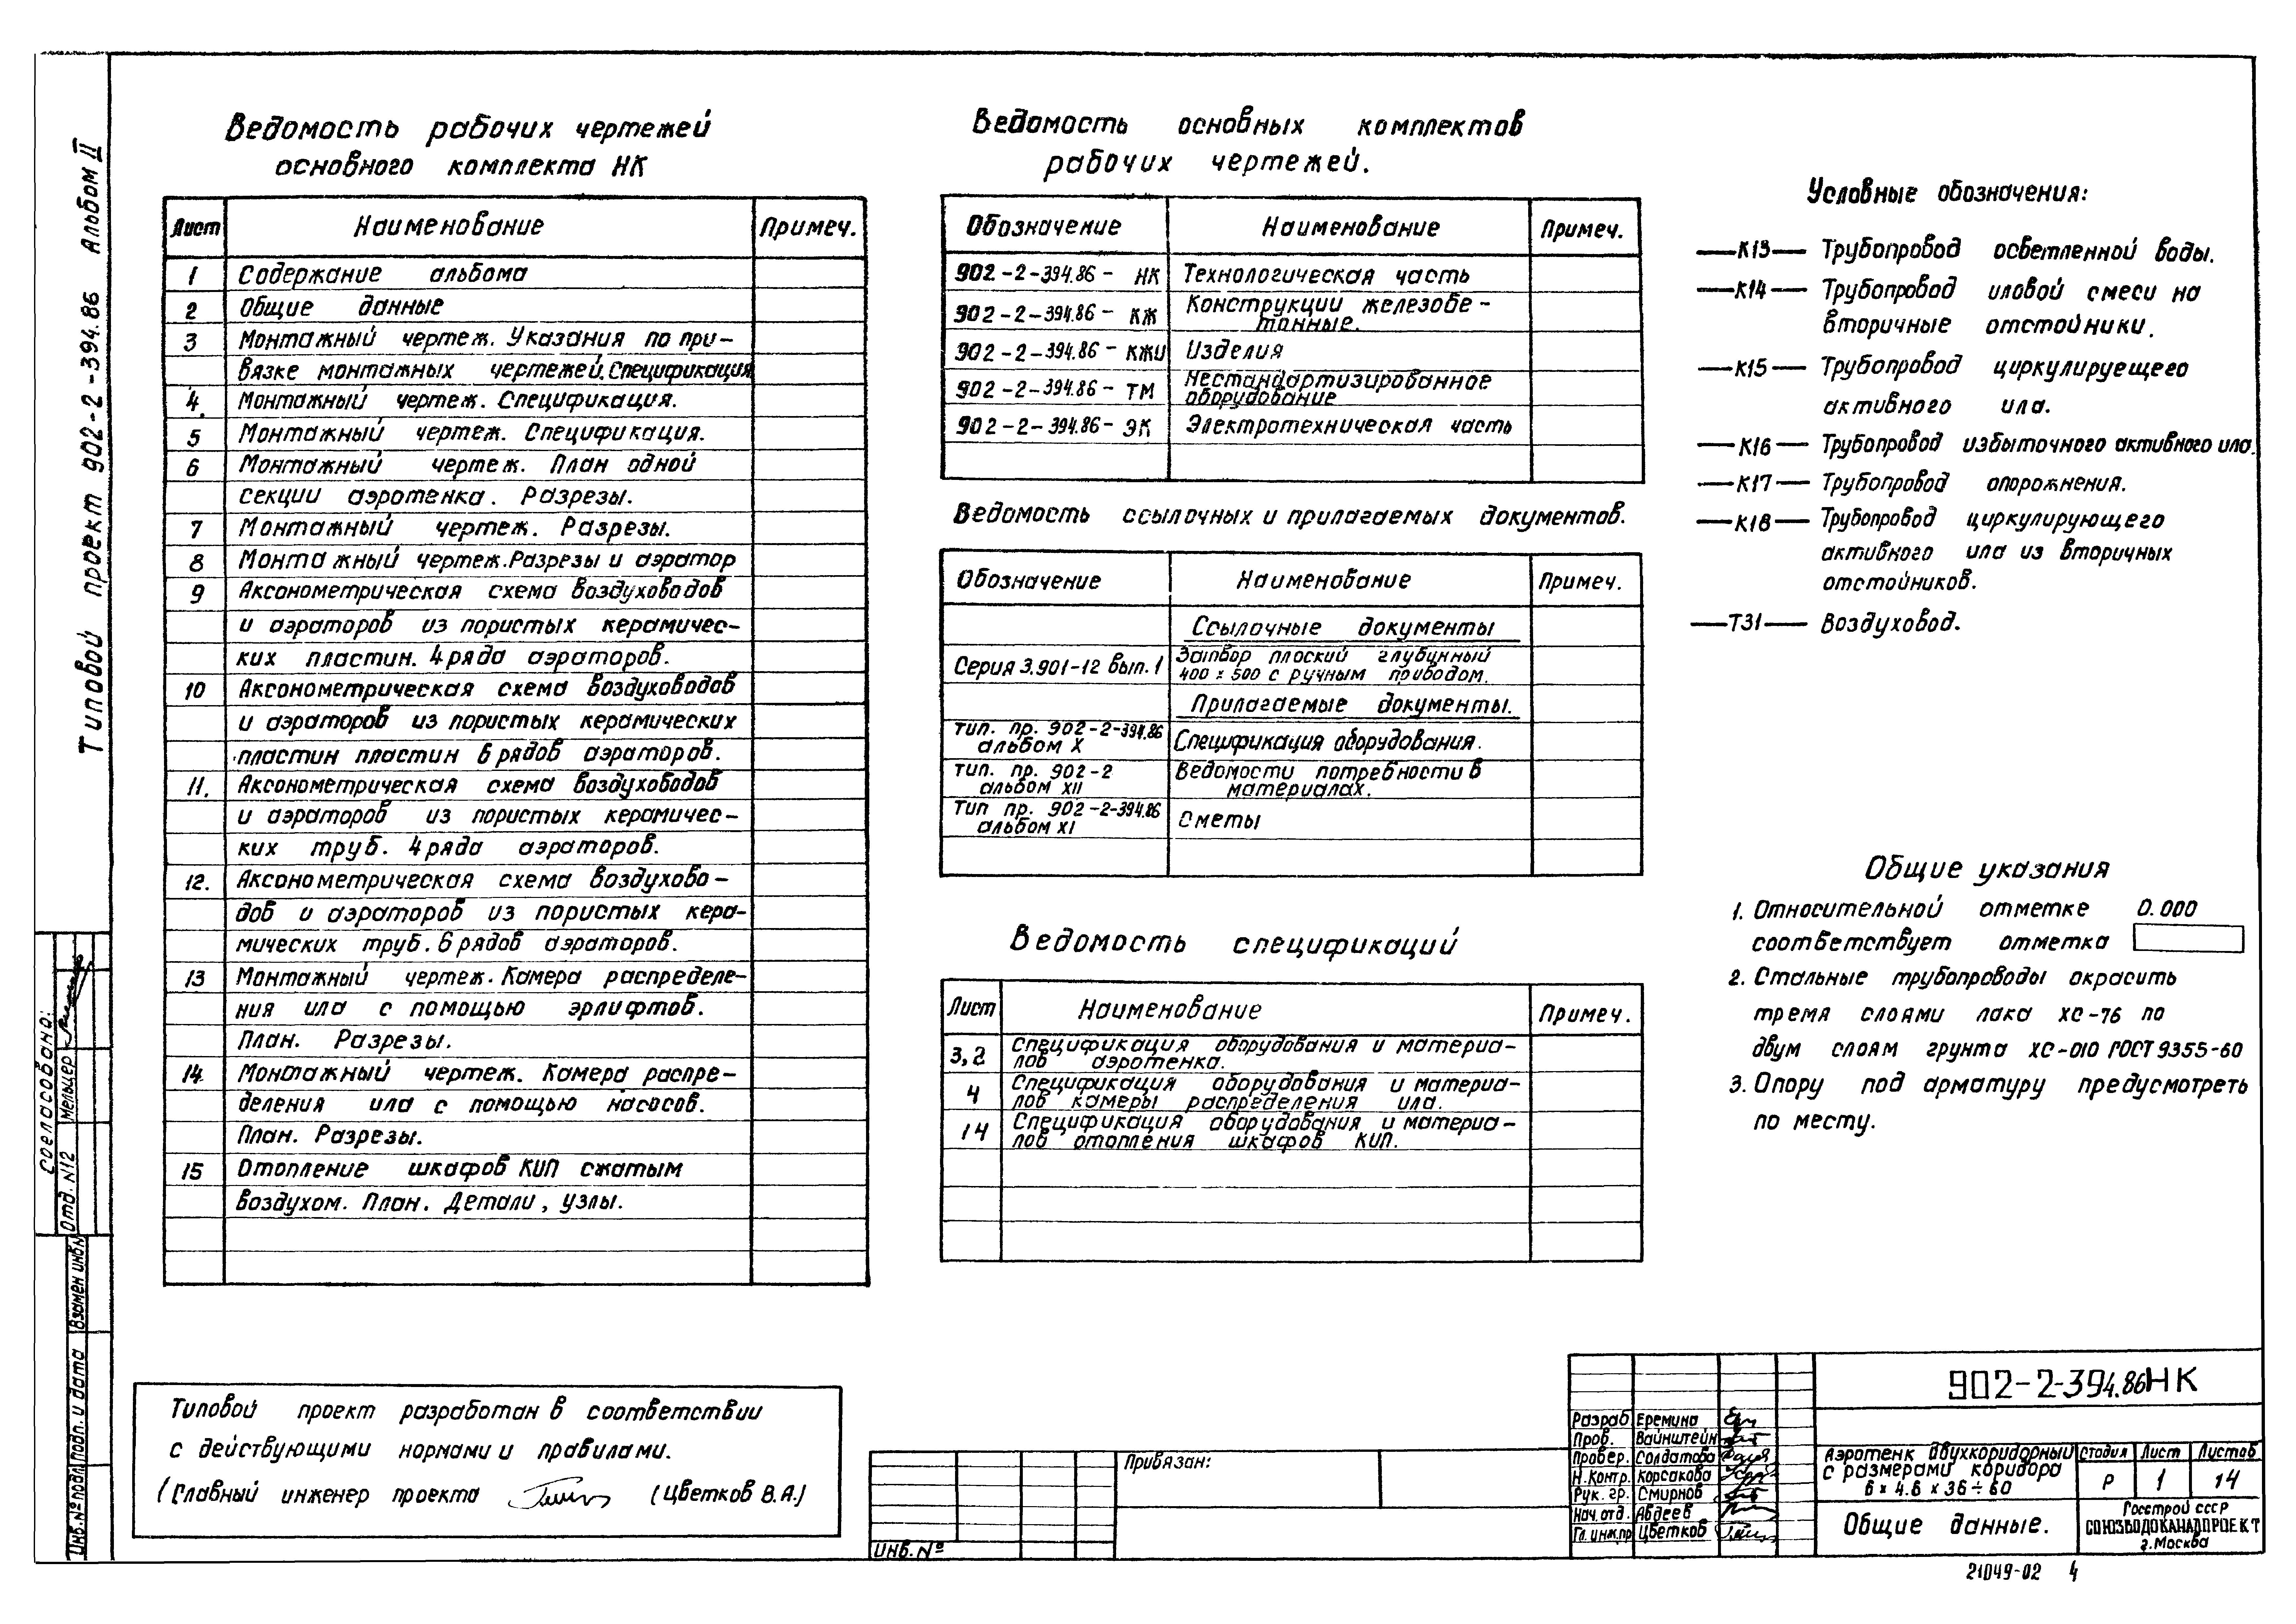 Типовой проект 902-2-394.86 Альбом II
Ведомость рабочих чертежей
основного комплекта НК
Лист Наименование Примеч.
1 Содержание альбома
2 Общие данные
3 Монтажный чертеж. Указания по при-
вязке монтажных чертежей. Спецификация
4. Монтажный чертеж. Спецификация.
5 Монтажный чертеж. Спецификация.
6 Монтажный чертеж. План одной
секции аэротенка. Разрезы.
7 Монтажный чертеж. Разрезы.
8 Монтажный чертеж. Разрезы и аэратор
9 Аксонометрическая схема воздуховодов
и аэраторов из пористых керамичес-
ких пластин. 4 ряда аэраторов.
10 Аксонометрическая схема воздуховодов
и аэраторов из пористых керамических
пластин пластин 6 рядов аэраторов.
11. Аксонометрическая схема воздуховодов
и аэраторов из пористых керамичес-
ких труб. 4 ряда аэраторов.
12. Аксонометрическая схема воздухово-
дов и аэраторов из пористых кера-
мических труб. 6 рядов аэраторов.
13 Монтажный чертеж. Камера распределе-
ния ила с помощью эрлифтов.
План. Разрезы.
14 Монтажный чертеж. Камера распре-
деления ила с помощью насосов.
План. Разрезы.
15 Отопление шкафов КИП сжатым
воздухом. План. Детали, узлы.
Ведомость основных комплектов
рабочих чертежей.
Обозначение Наименование Примеч.
902-2-394.86- НК Технологическая часть
902-2-394.86- КЖ Конструкции железобе-
тонные.
902-2-394.86- КЖИ Изделия
902-2-394.86- ТМ Нестандартизированное
оборудование
902-2-394.86- ЭК Электротехническая часть
Ведомость ссылочных и прилагаемых документов.
Обозначение Наименование Примеч.
Ссылочные документы
Серия 3.901-12 вып. 1 Затвор плоский глубинный
400 х 500 с ручным приводом.
Прилагаемые документы.
тип. пр. 902-2-394.86
альбом X Спецификация оборудования.
тип. пр. 902-2
альбом XII Ведомости потребности в
материалах.
Тип пр. 902-2-394.86
альбом XI Сметы
Ведомость спецификаций
Лист Наименование Примеч.
3,2 Спецификация оборудования и материа-
лов аэротенка.
4 Спецификация оборудования и материа-
лов камеры распределения ила.
14 Спецификация оборудования и материа-
лов отопления шкафов КИП.
Условные обозначения:
—К13— Трубопровод осветленной воды.
—К14— Трубопровод иловой смеси на
вторичные отстойники.
—К15— Трубопровод циркулируещего
активного ила.
—К16— Трубопровод избыточного активного ила.
—К17— Трубопровод опорожнения.
—К18— Трубопровод циркулирующего
активного ила из вторичных
отстойников.
—Т31— Воздуховод.
Общие указания
1. Относительной отметке 0.000
соответствует отметка
2. Стальные трубопроводы окрасить
тремя слоями лака ХС-76 по
двум слоям грунта ХС-010 ГОСТ 9355-60
3. Опору под арматуру предусмотреть
по месту.
Согласовано:
Отд. N12 Мельцер
Взамен инв.N
Подп. и дата
Инв.№ подл.
Типовой проект разработан в соответствии
с действующими нормами и правилами.
(Главный инженер проекта (Цветков В.А.)
Привязан:
Инв.№
902-2-394.86НК
Разраб Еремина
Пров. Вайнштейн
Провер. Солдатова
Н.Контр. Корсакова
Рук. гр. Смирнов
Нач. отд. Авдеев
Гл. инж.пр Цветков
Аэротенк двухкоридорный
с размерами коридора
6 х 4.6 х 36÷60
Стадия Лист Листов
Р 1 14
Общие данные.
Госстрой СССР
СОЮЗВОДОКАНАЛПРОЕКТ
г.Москва
21049-02 4